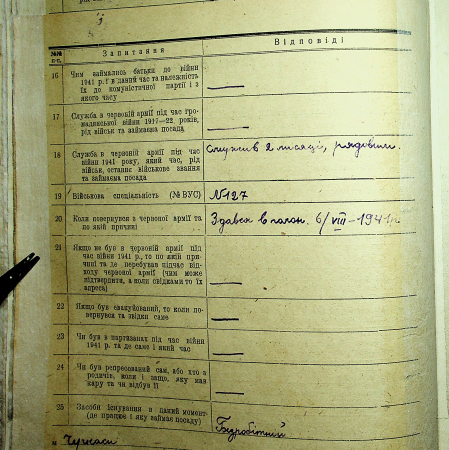 №№ п-п. Запитання Відповіді
16 Чим займались батьки до війни
1941 р. і в даний час та належність
їх до комуністичної партії і з
якого часу —
17 Служба в червоній армії під час гро-
мадянської війни 1917—22 років,
рід військ та займаєма посада —
18 Служба в червоній армії під час
війни 1941 року, який час, рід
військ, останнє військове звання
та займаєма посада
служив 2 місяці, рядовим.
19 Військова спеціяльність (№ ВУС) №127
20 Коли повернувся з червоної армії та
по якій причині
Здався в полон. 6/VIII-1941р.
21 Якщо не був в червоній армії під
час війни 1941 р., то по якій при-
чині та де перебував підчас від-
ходу червоної армії (чим може
підтвердити, а коли свідками то їх
адреса) —
22 Якщо був евакуйований, то коли по-
вернувся та звідки саме —
23 Чи був в партизанах під час війни
1941 р. та де саме і який час —
24 Чи був репресований сам, або хто з
родичів, коли і защо, яку мав
кару та чи відбув її —
25 Засоби існування в даний момент
(де працює і яку займає посаду) Безробітний
м Черкаси